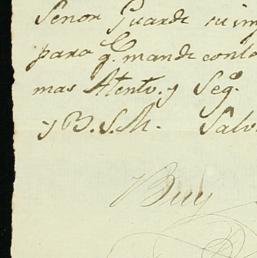 Señor Guarde su im
para q. mande conto
mas Atento. y Seg.
y B. S. M. Salv
Buy